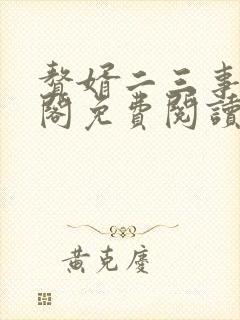 贅婿二三事
閣免費閱讀
黃克慶